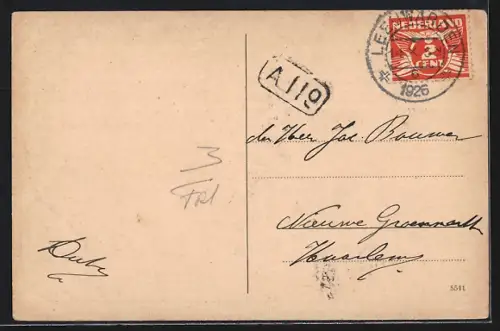 LEEUWARDEN
1926
NEDERLAND
½
CENT
A 119
den Heer Jos. Bouwer
Nieuwe Groenmarkt
Haarlem
3
5541